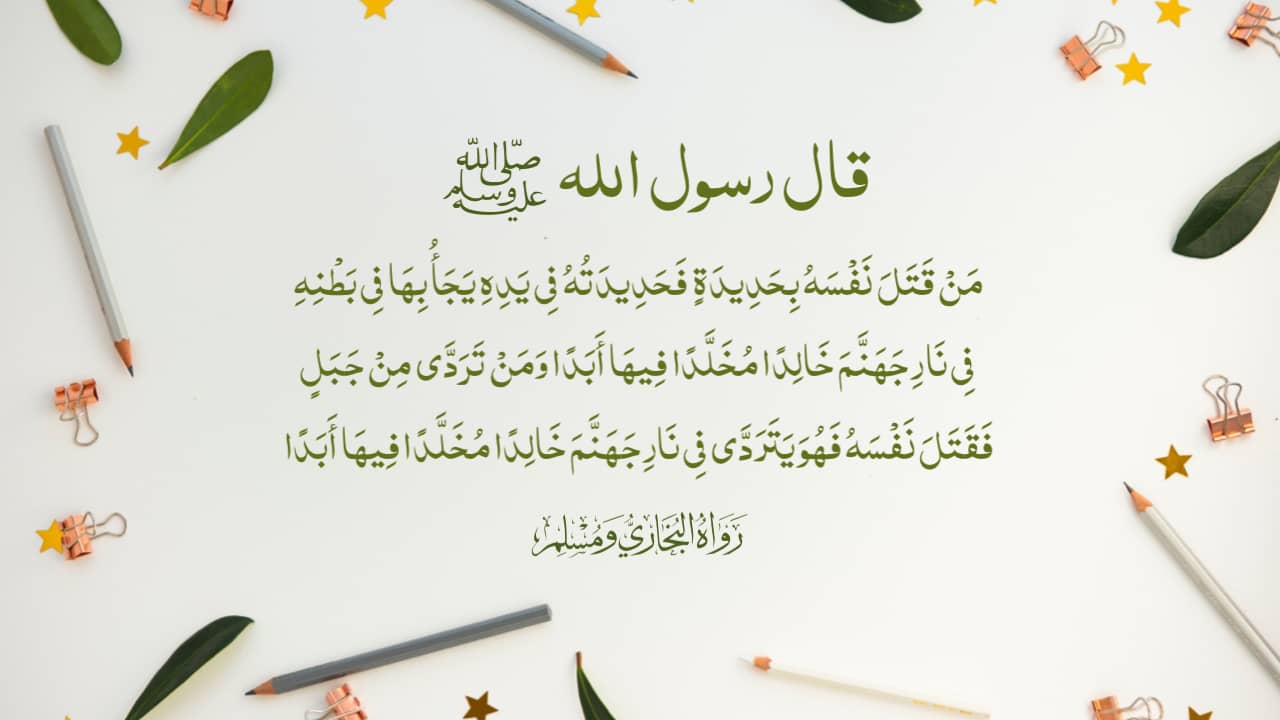 قال رسول الله ﷺ
مَنْ قَتَلَ نَفْسَهُ بِحَدِيدَةٍ فَحَدِيدَتُهُ فِي يَدِهِ يَجَأُ بِهَا فِي بَطْنِهِ
فِي نَارِ جَهَنَّمَ خَالِدًا مُخَلَّدًا فِيهَا أَبَدًا وَمَنْ تَرَدَّى مِنْ جَبَلٍ
فَقَتَلَ نَفْسَهُ فَهُوَ يَتَرَدَّى فِي نَارِ جَهَنَّمَ خَالِدًا مُخَلَّدًا فِيهَا أَبَدًا
رَوَاهُ البُخَارِيُّ وَمُسْلِم